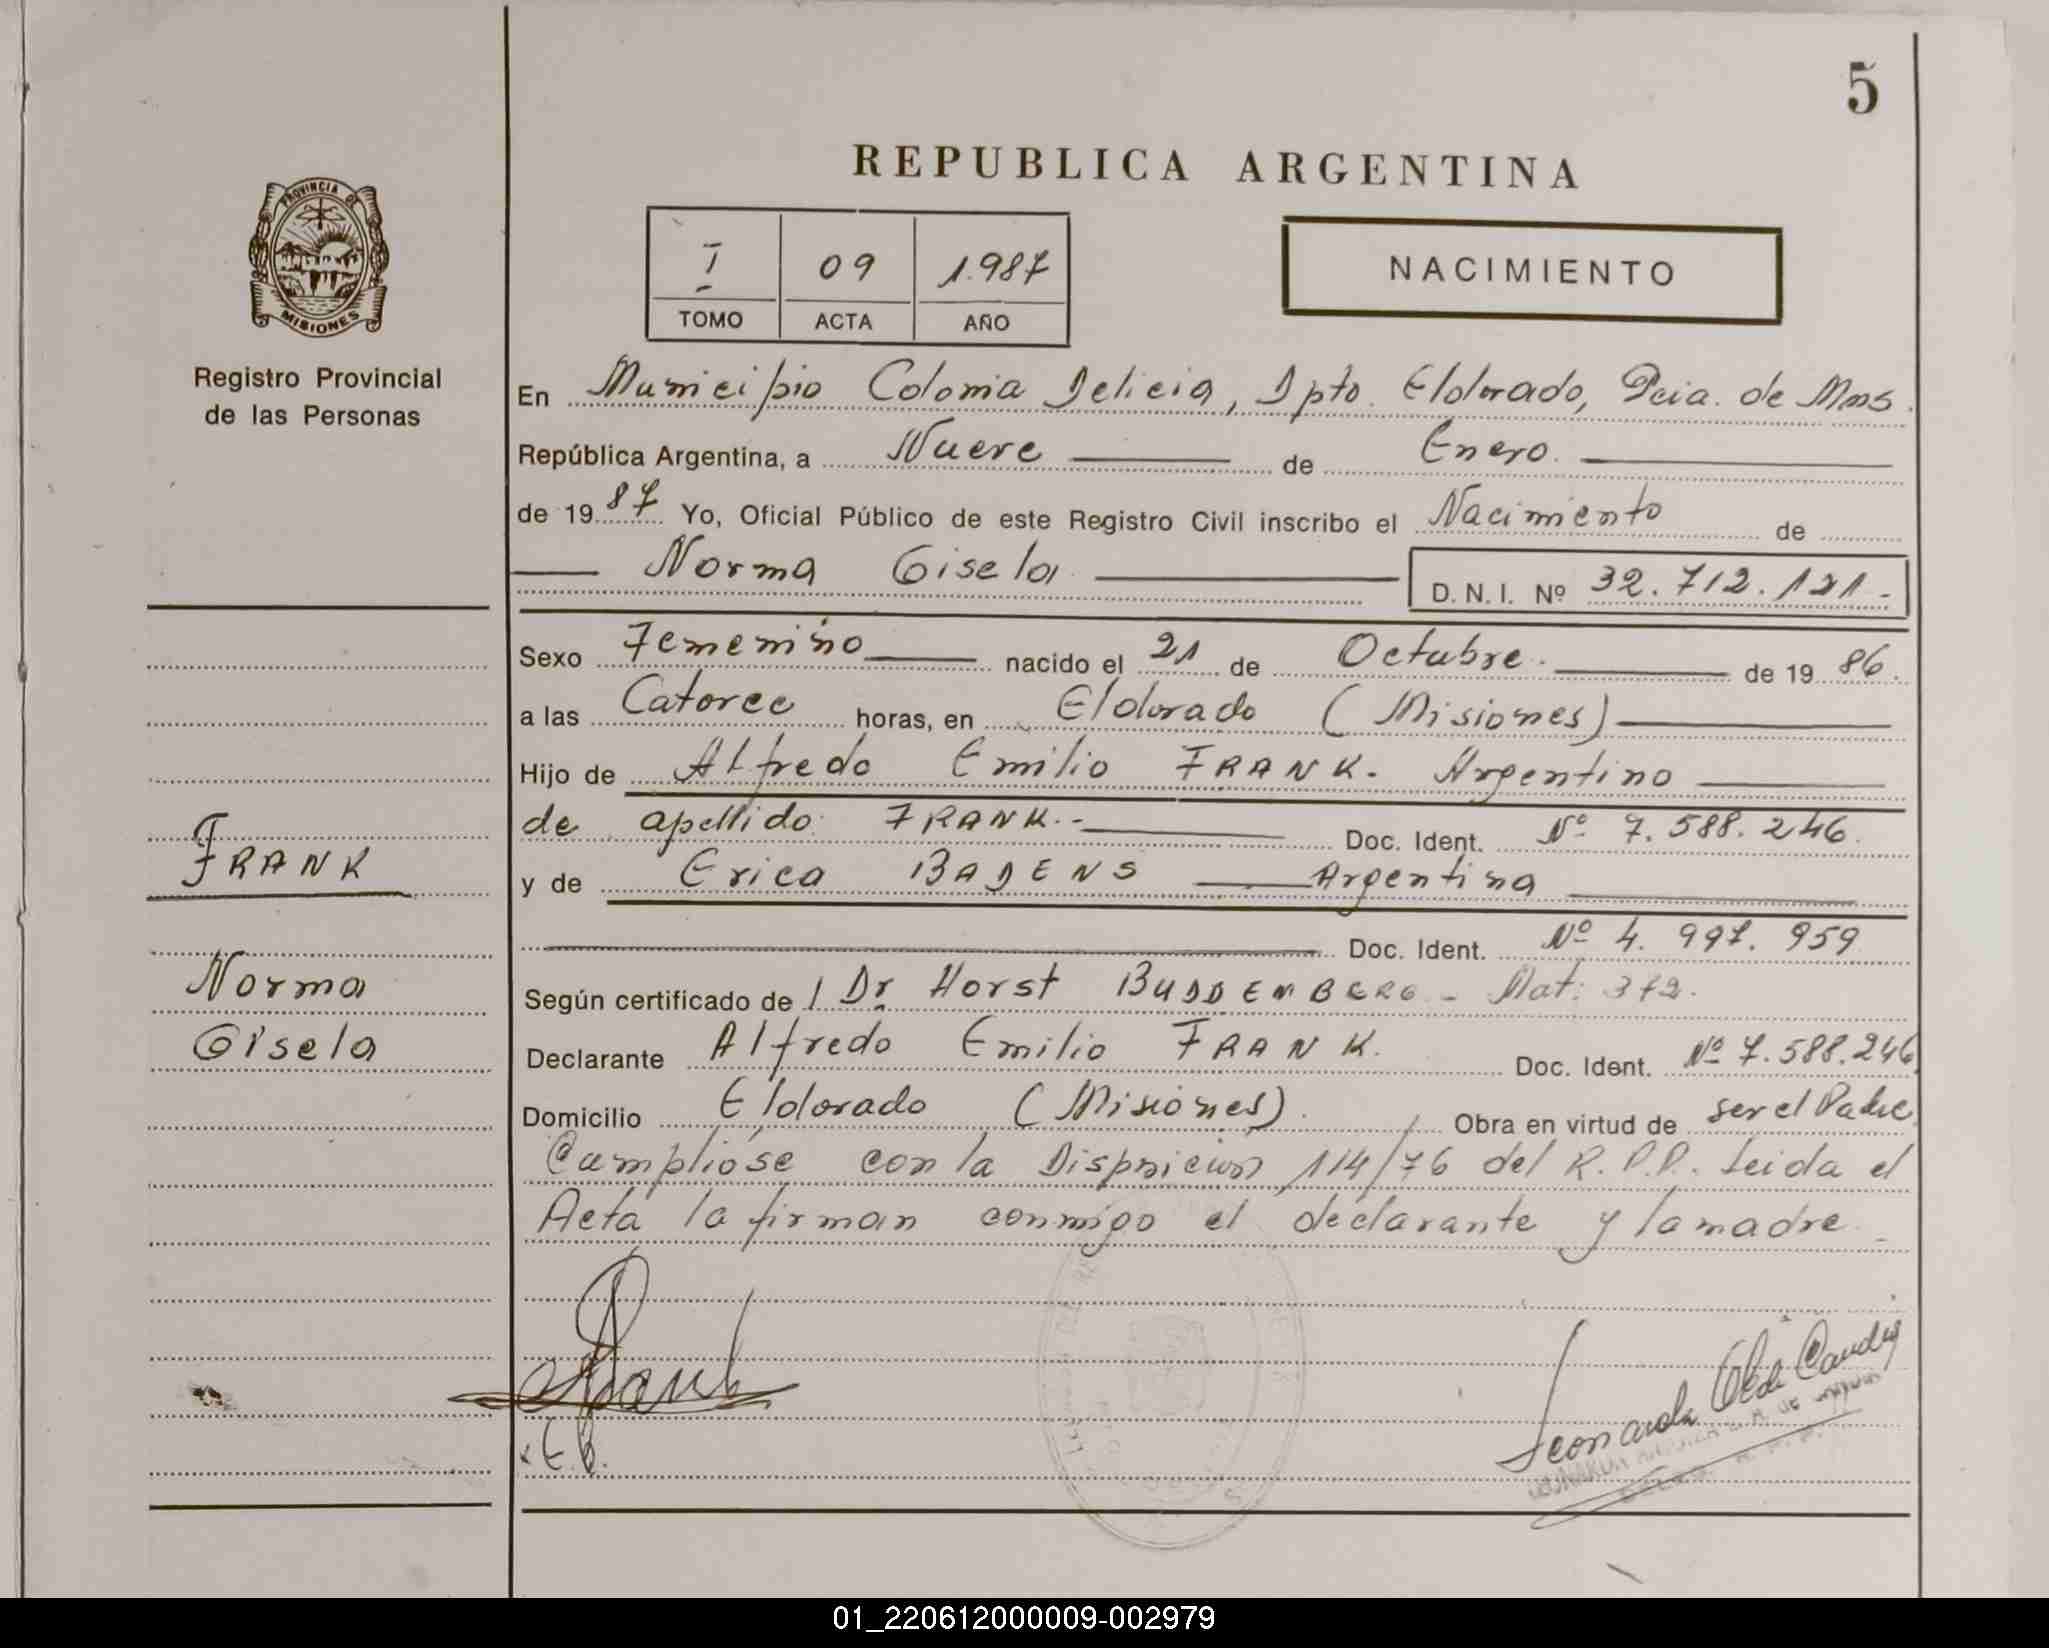 5
REPUBLICA ARGENTINA
I 09 1.987
TOMO ACTA AÑO
NACIMIENTO
PROVINCIA DE
MISIONES
Registro Provincial
de las Personas
En Municipio Colonia Delicia, Dpto. Eldorado, Pcia. de Mnes.
República Argentina, a Nueve de Enero.
de 19 87 Yo, Oficial Público de este Registro Civil inscribo el Nacimiento de
Norma Gisela
D. N. I. Nº 32.712.121.-
Sexo Femenino nacido el 21 de Octubre. de 19 86.
a las Catorce horas, en Eldorado (Misiones)
Hijo de Alfredo Emilio FRANK. Argentino
de apellido FRANK.- Doc. Ident. Nº 7.588.246.
y de Erica BADENS Argentina
Doc. Ident. Nº 4.997.959
Según certificado de Dr Horst BUDDEMBERG - Mat: 372.
Declarante Alfredo Emilio FRANK. Doc. Ident. Nº 7.588.246
Domicilio Eldorado (Misiones). Obra en virtud de ser el Padre
Cumplióse con la Disposición 114/76 del R.P.P. Leida el
Acta la firman conmigo el declarante y la madre.-
FRANK
Norma
Gisela
E.B.
Leonarda
01_220612000009-002979